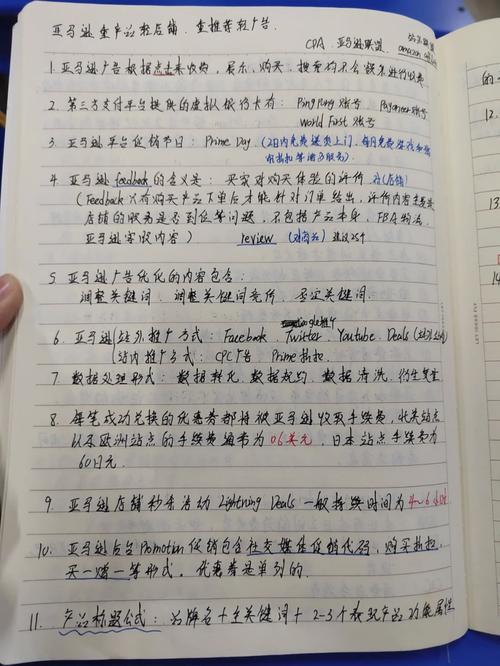 亚马逊重产品轻店铺、重推荐轻广告
CPA 亚马逊联盟
amazon
1. 亚马逊广告根据点击来收费，展示、购买、搜索均不会额外进行收费
2. 第三方支付平台提供的虚拟银行卡有：PingPong账号 Payoneer账号
World First 账号
3. 亚马逊平台促销节日：Prime Day.(2日内免费送货上门，每月免费
4. 亚马逊 feedback 的含义是：买家对购买体验的评价 对(店铺)
(Feedback只有购买产品下单后才能针对订单给出，评价内容主要是
店铺的服务是否到位等问题，不包括产品本身，FBA物流，
亚马逊客服内容) review (对商品) 建议25个
5. 亚马逊广告优化的内容包含：
调整关键词、调整关键词竞价、否定关键词.
6. 亚马逊(站外推广方式：Facebook. Twitter. Youtube. Deals (站外
Google推广
(站内推广方式：CPC广告 Prime折扣.
7. 数据处理形式：数据转化、数据规约、数据清洗、
8. 每笔成功兑换的优惠券都将被亚马逊收取手续费，北美站点
以及欧洲站点的手续费通常为0.6美元，日本站点手续费为
60日元.
9. 亚马逊店铺秒杀活动 Lightning Deals 一般持续时间为4~6小时
10. 亚马逊后台Promotion促销包含社交媒体促销代码，购买折扣，
买一赠一等形式。优惠券是单列的.
11. 产品标题公式：品牌名+主关键词+2-3个表现产品功能属性
的
12.
14